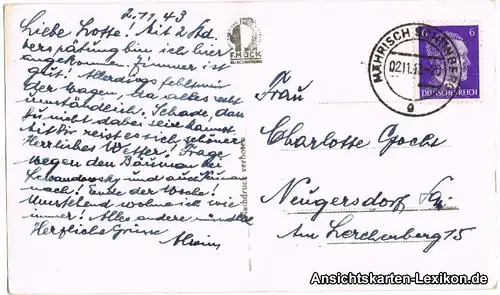 2.11.43
Liebe Lotte! Mit 2 Std.
Verspätung bin ich hier
angekommen. Zimmer ist
gut! Allerdings fehlt mir
der Wagen, da alles recht
umständlich. Schade, dass
Du nicht dabei sein kannst.
Mit Dir reist es sich schöner.
Herrliches Wetter! Frage
wegen den Bäumen bei
Lewandowsky und auch
nach! Ende der Woche!
Umstehend wohne ich wie
immer! Alles andere mündlich
Herzliche Grüsse
F. MÜCK
Nachdruck verboten
MÄHRISCH SCHÖNBERG
02.11.43
a
6
DEUTSCHES REICH
Frau
Charlotte Gocht
Neugersdorf Sa.
Am Lerchenberg 15
Ansichtskarten-Lexikon.de